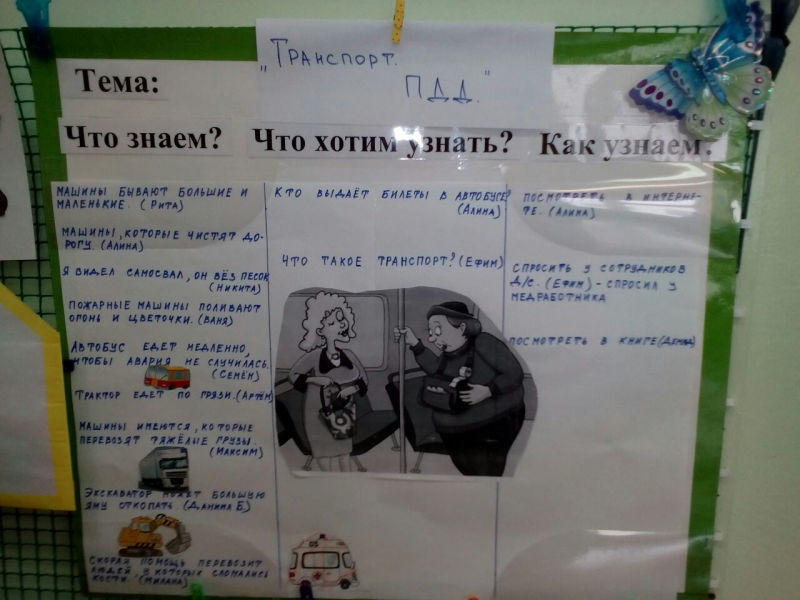 Тема:
"Транспорт.
ПДД."
Что знаем?
Что хотим узнать?
Как узнаем?
МАШИНЫ БЫВАЮТ БОЛЬШИЕ И
МАЛЕНЬКИЕ. (РИТА)
МАШИНЫ, КОТОРЫЕ ЧИСТЯТ ДО-
РОГУ. (АЛИНА)
Я ВИДЕЛ САМОСВАЛ, ОН ВЁЗ ПЕСОК
(НИКИТА)
ПОЖАРНЫЕ МАШИНЫ ПОЛИВАЮТ
ОГОНЬ И ЦВЕТОЧКИ. (ВАНЯ)
АВТОБУС ЕДЕТ МЕДЛЕННО,
ЧТОБЫ АВАРИЯ НЕ СЛУЧИЛАСЬ.
(СЕМЁН)
ТРАКТОР ЕДЕТ ПО ГРЯЗИ. (АРТЁМ)
МАШИНЫ ИМЕЮТСЯ, КОТОРЫЕ
ПЕРЕВОЗЯТ ТЯЖЁЛЫЕ ГРУЗЫ.
(МАКСИМ)
ЭКСКАВАТОР МОЖЕТ БОЛЬШУЮ
ЯМУ ОТКОПАТЬ. (ДАНИЛА Б.)
СКОРАЯ ПОМОЩЬ ПЕРЕВОЗИТ
ЛЮДЕЙ, У КОТОРЫХ СЛОМАЛИСЬ
КОСТИ. (МИЛАНА)
КТО ВЫДАЁТ БИЛЕТЫ В АВТОБУСЕ?
(АЛИНА)
ЧТО ТАКОЕ ТРАНСПОРТ? (ЕФИМ)
ПОСМОТРЕТЬ В ИНТЕРНЕ-
ТЕ. (АЛИНА)
СПРОСИТЬ У СОТРУДНИКОВ
Д/С. (ЕФИМ) - СПРОСИЛ У
МЕДРАБОТНИКА
ПОСМОТРЕТЬ В КНИГЕ